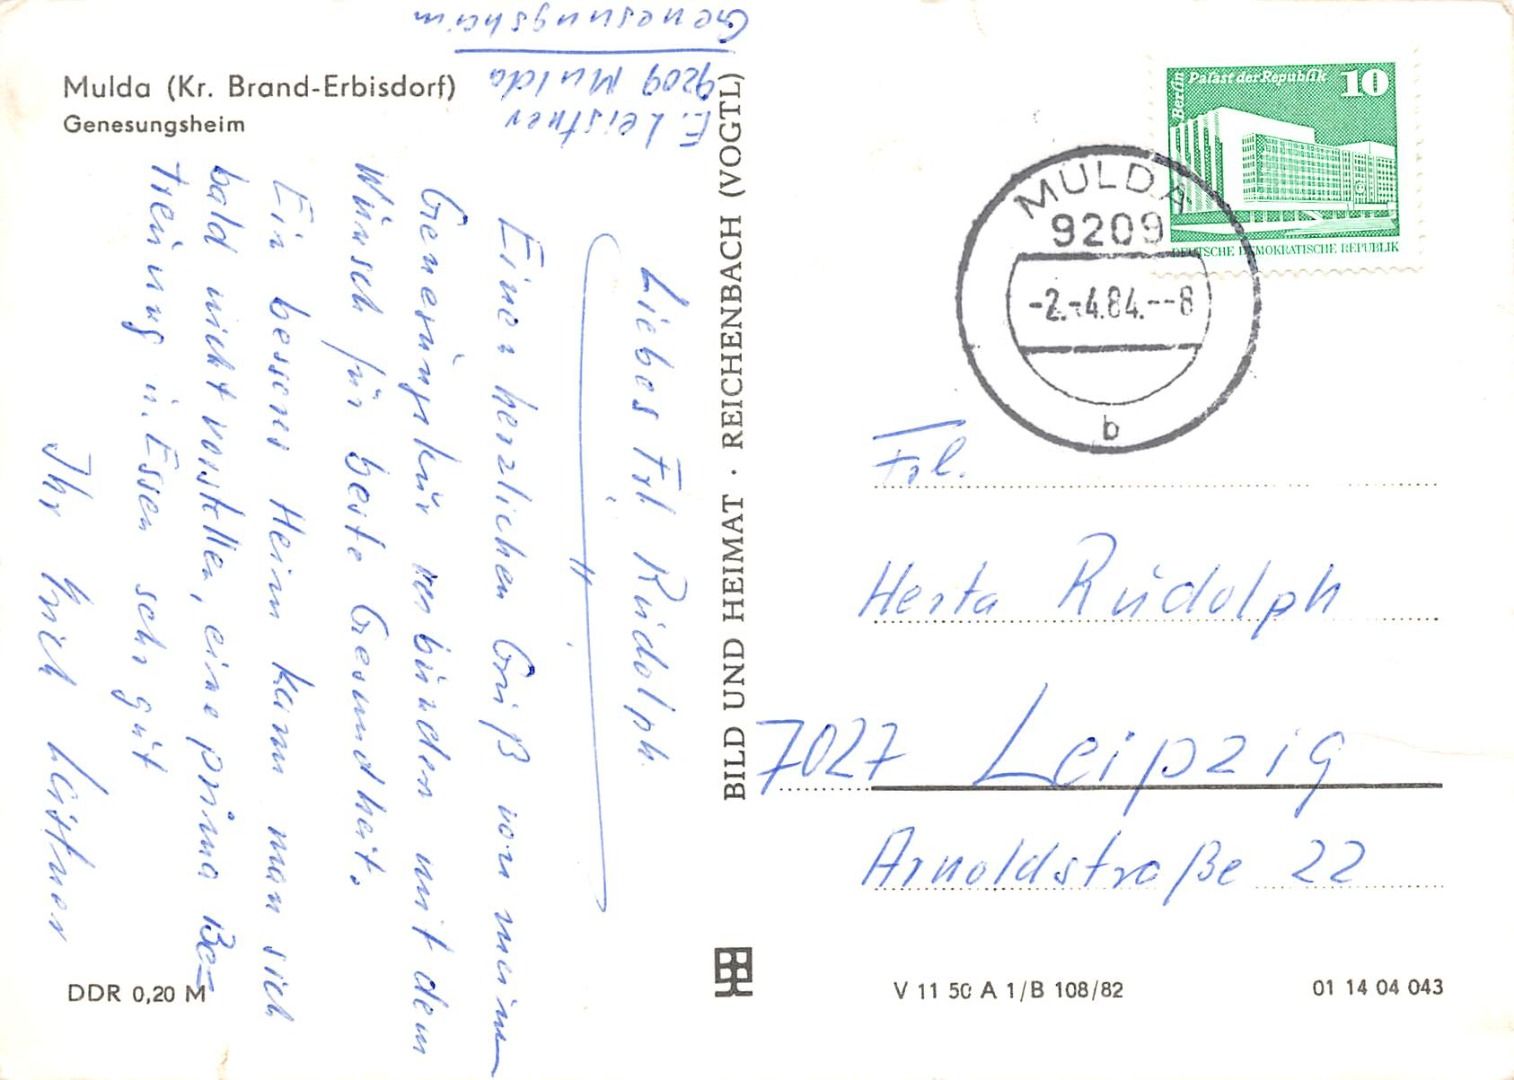 Mulda (Kr. Brand-Erbisdorf)
Genesungsheim
E. Leistner
9209 Mulda
Genesungsheim
Liebes Frl. Rudolph.
Einen herzlichen Gruß von mein
Genesungskur verbunden mit dem
Wunsch für beste Gesundheit.
Ein besseres Heim kann man sich
bald nicht vorstellen, eine prima Be=
treuung u. Essen sehr gut
Ihr Erich Leistner
DDR 0,20 M
BILD UND HEIMAT · REICHENBACH (VOGTL)
Berlin Palast der Republik 10
DEUTSCHE DEMOKRATISCHE REPUBLIK
MULDA
9209
-2.-4.84.--8
b
Frl.
Herta Rudolph
7027 Leipzig
Arnoldstraße 22
V 11 50 A 1/B 108/82
01 14 04 043